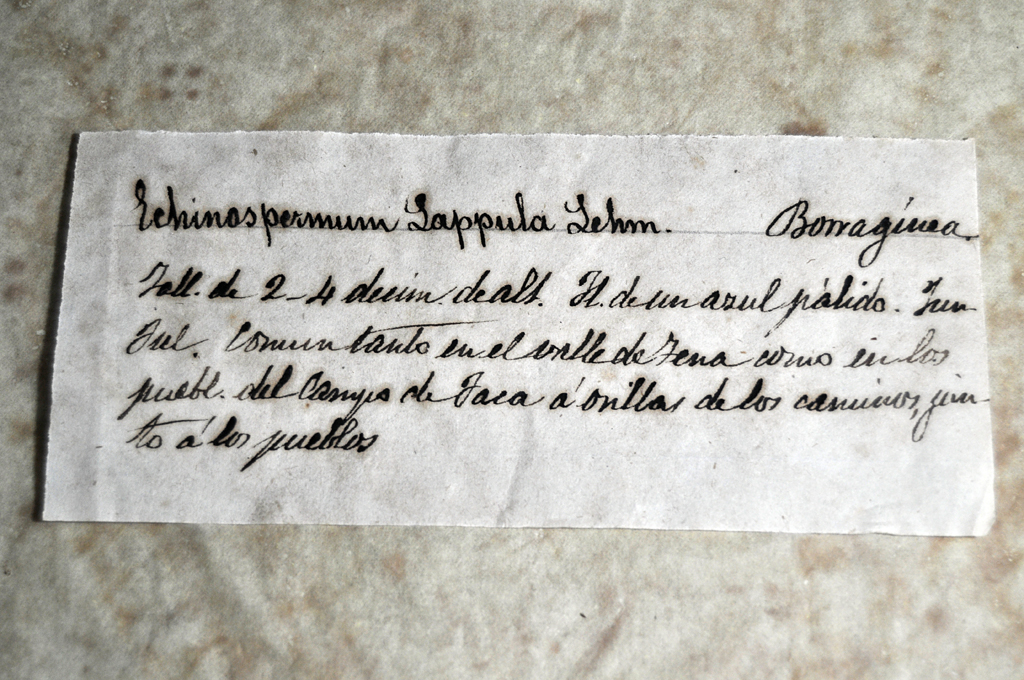 Echinospermum Lappula Lehm. Borraginea.
Tall. de 2-4 decim de alt. Fl. de un azul pálido. Jun
Jul. Comun tanto en el valle de Tena como en los
puebl. del Campo de Jaca á orillas de los caminos, jun-
to á los pueblos